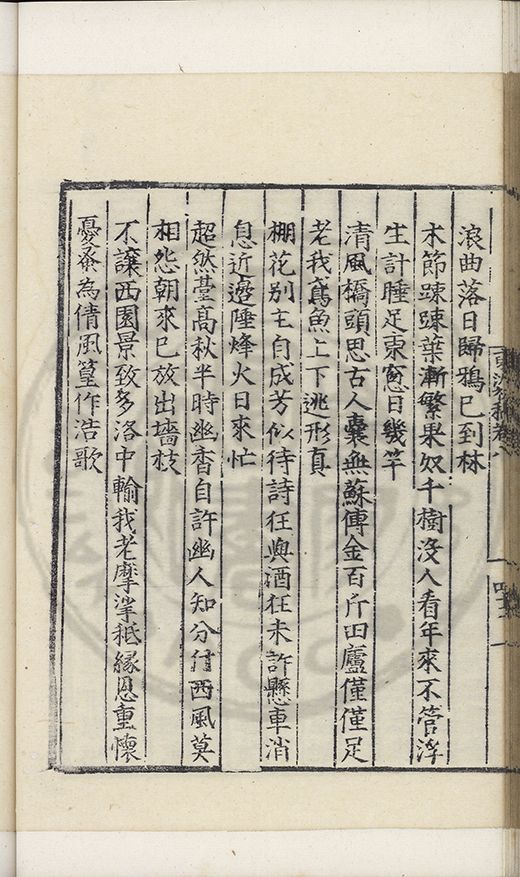 浪曲落日歸鴉已到林
木節踈踈葉漸繁果奴千樹沒人看年來不管浮
生計睡足東窓日幾竿
清風橋頭思古人囊無蘇傅金百斤田廬僅僅足
老我鳶魚上下逃形真
棚花別主自成芳似待詩狂與酒狂未許懸車消
息近邊陲烽火日來忙
超然臺高秋半時幽香自許幽人知分付西風莫
相怨朝來已放出墻枝
不讓西園景致多洛中輸我老摩挲秪緣恩重懷
憂蚤為倩風篁作浩歌
卷八